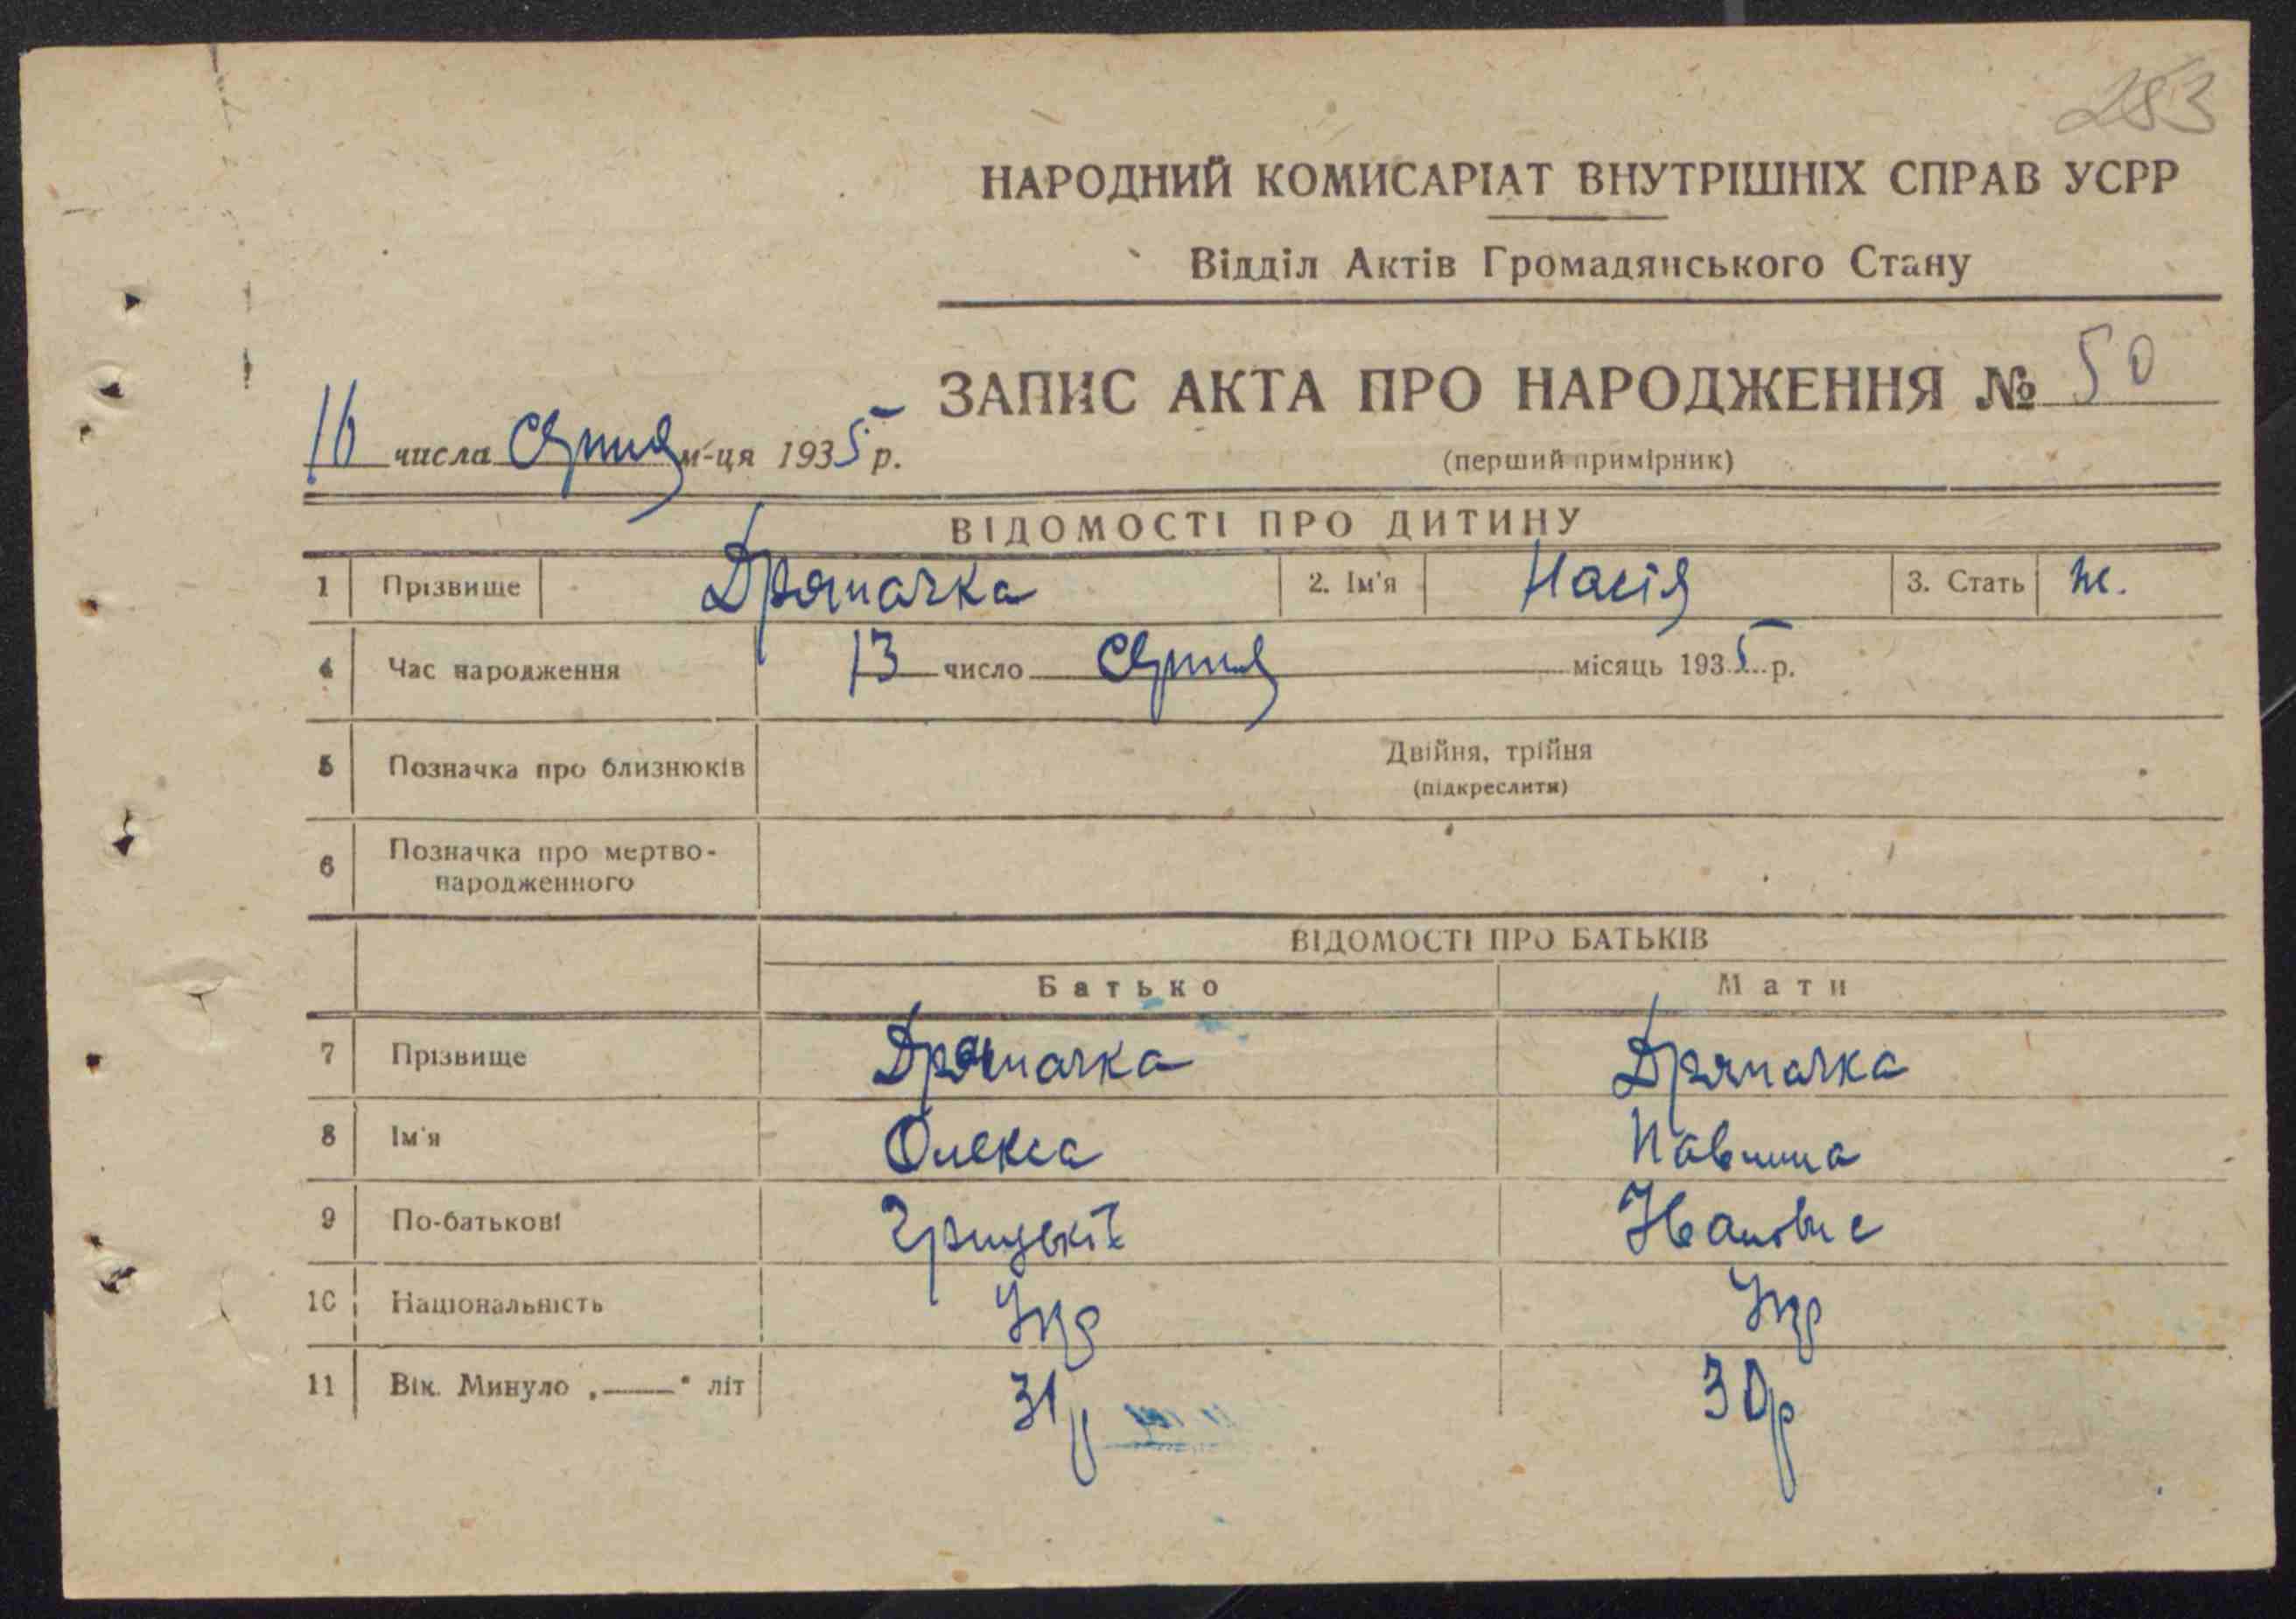 283
НАРОДНИЙ КОМИСАРІАТ ВНУТРІШНІХ СПРАВ УСРР
Відділ Актів Громадянського Стану
ЗАПИС АКТА ПРО НАРОДЖЕННЯ № 50
16 числа серпня м-ця 1935 р.
(перший примірник)
ВІДОМОСТІ ПРО ДИТИНУ
1 Прізвище Дряпачка 2. Ім'я Настя 3. Стать ж.
4 Час народження 13 число серпня місяць 1935 р.
5 Позначка про близнюків Двійня, трійня
(підкреслити)
6 Позначка про мертво-
народженного
ВІДОМОСТІ ПРО БАТЬКІВ
Батько Мати
7 Прізвище Дряпачка Дряпачка
8 Ім'я Олекса Павлина
9 По-батькові
10 Національність Укр Укр
11 Вік. Минуло „——“ літ 31р 30р